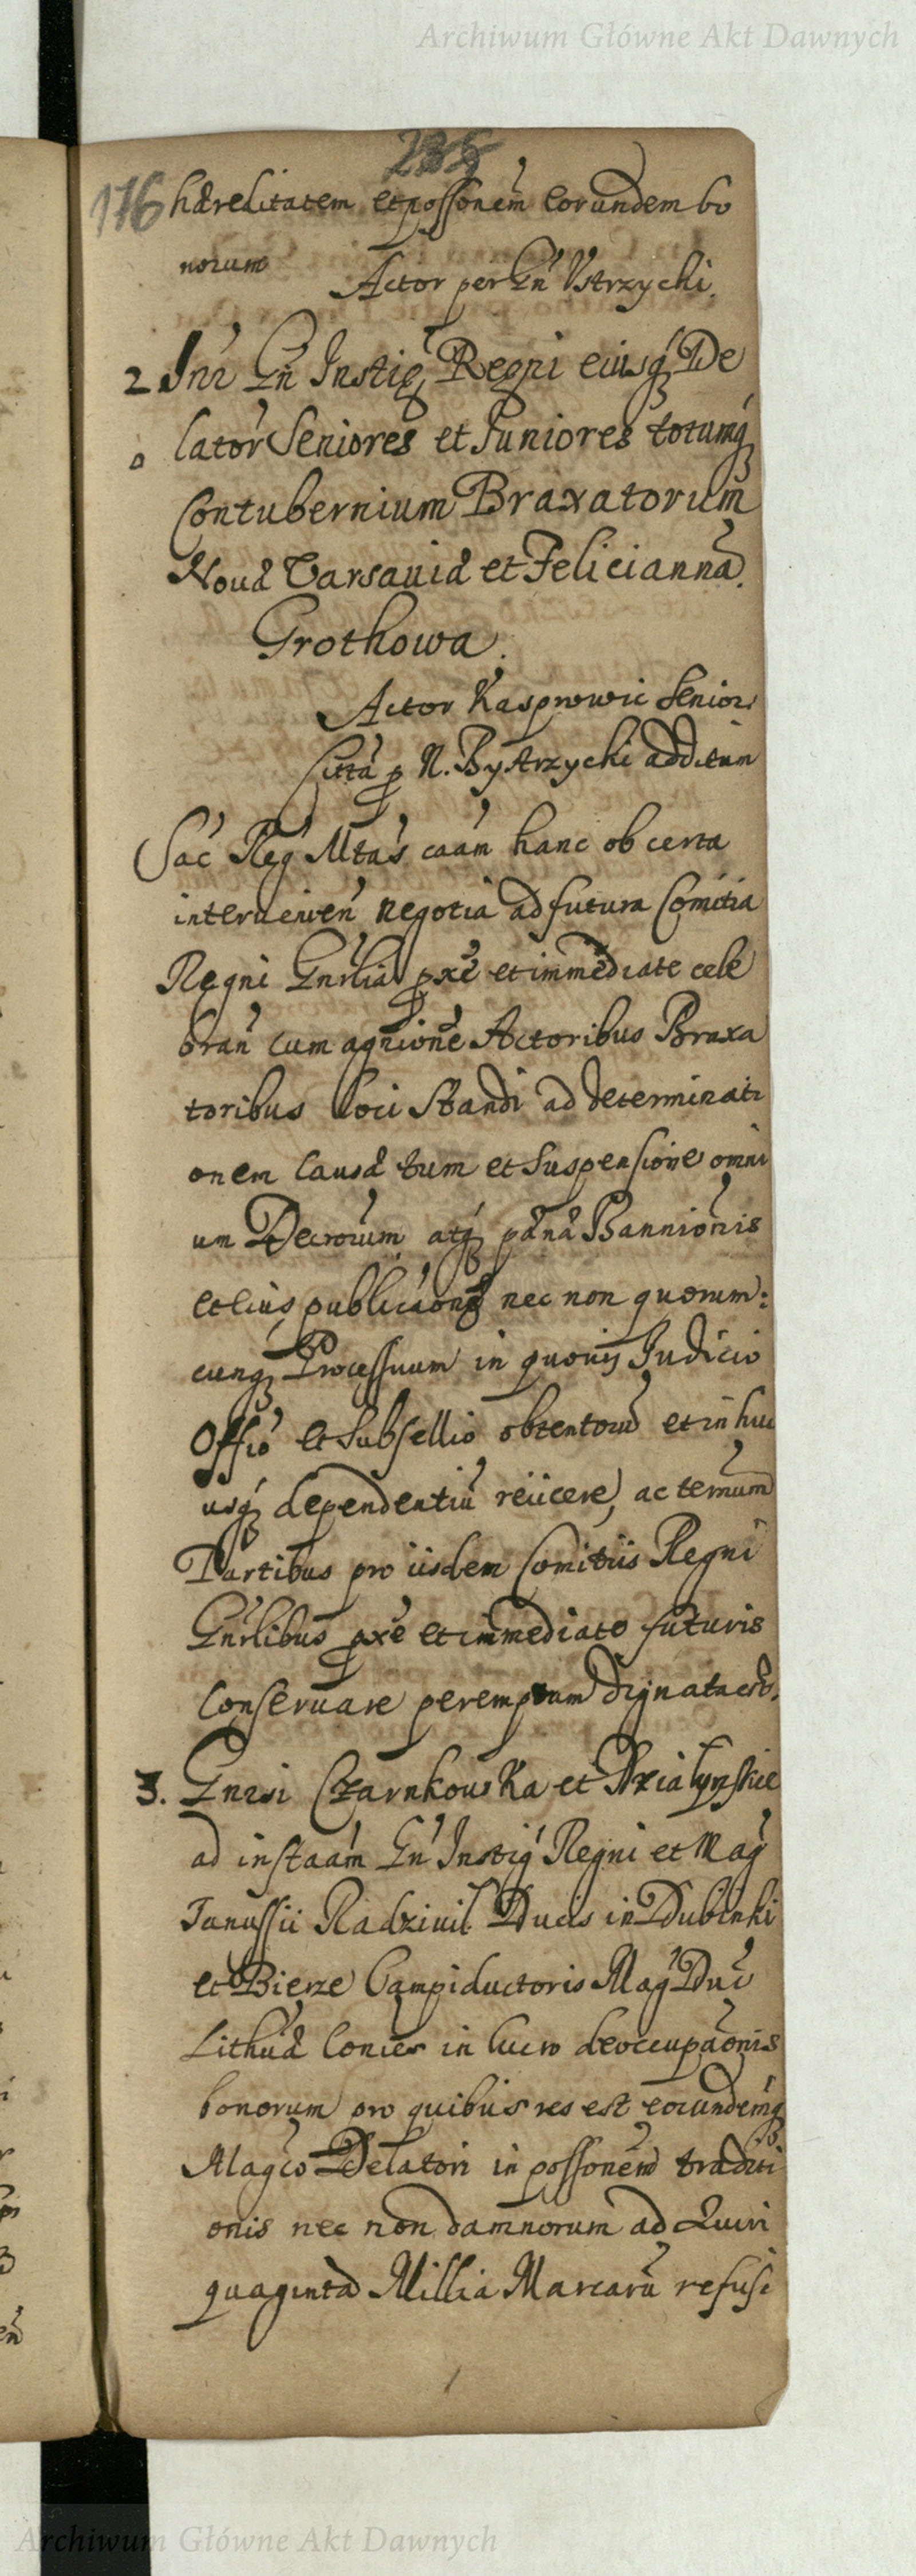 Archiwum Główne Akt Dawnych
235
176 hæreditatem et possonem eorundem bo
norum
Actor per Gn Ustrzycki.
2. Inr Gn Instig Regni eiusq De
lator Seniores et Juniores totumq
Contubernium Braxatorum
Novæ Varsaviæ et Feliciannã
Grothowa.
Actor Kasprowic Senior
Citta p N. Bystrzycki additum
Sac Reg Mtas caãm hanc ob certa
intervenien negotia ad futura Comitia
Regni Gnrlia pxe et immediate cele
bran cum agnione Actoribus Braxa
toribus loci Standi ad determinati
onem Causæ tum et Suspensione omni
um Decrorum atq pænæ Bannionis
et eius publicaonis nec non quorum:
cunq Processuum in quovis Judicio
Offio et Subsellio obtentorũ et in huc
usq dependentiũ reiicere, ac termum
Partibus pro iisdem Comitiis Regni
Gnrlibus pxe et immediate futuris
Conservare peremptum dignata est.
3. Gnrsi Czarnkowska et Dzialynskie
ad instaãm Gn Instig Regni et Mag
Janussii Radzivil Ducis in Dubinki
et Bierze Campiductoris Mag Duc
Lithuæ Conies in lucro deoccupaonis
bonorum pro quibus res est eorundemq
Magco Delatori in possonem traditi
onis nec non damnorum ad Quin
quaginta Millia Marcarũ refusi
Archiwum Główne Akt Dawnych